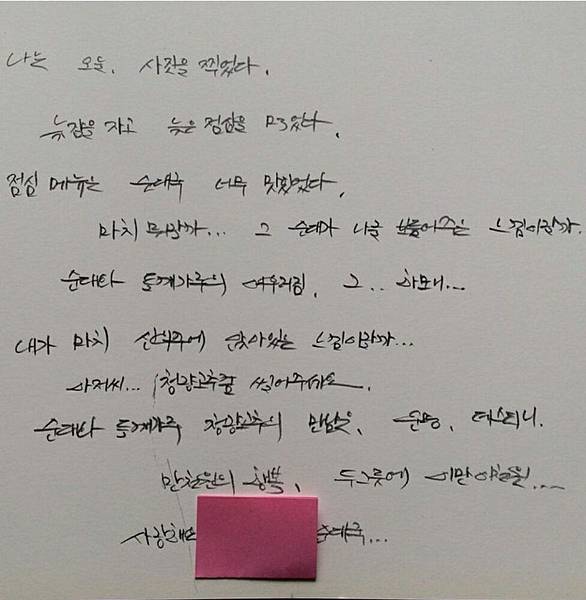 나는 오늘, 사진을 찍었다.
늦잠을 자고 늦은 점심을 먹었다.
점심 메뉴는 순대국 너무 맛있었다.
마치 뭐랄까... 그 순대가 나를 보듬어주는 느낌이랄까.
순대와 들깨가루의 어우러짐, 그.. 하모니...
내가 마치 앉아있는 느낌이랄까...
아저씨... 청양고추좀 썰어주세요.
순대와 들깨가루 청양고추의 만남은, 운명, 데스티니.
만천원의 행복, 두그릇에 이만이천원...
사랑해요 순대국...